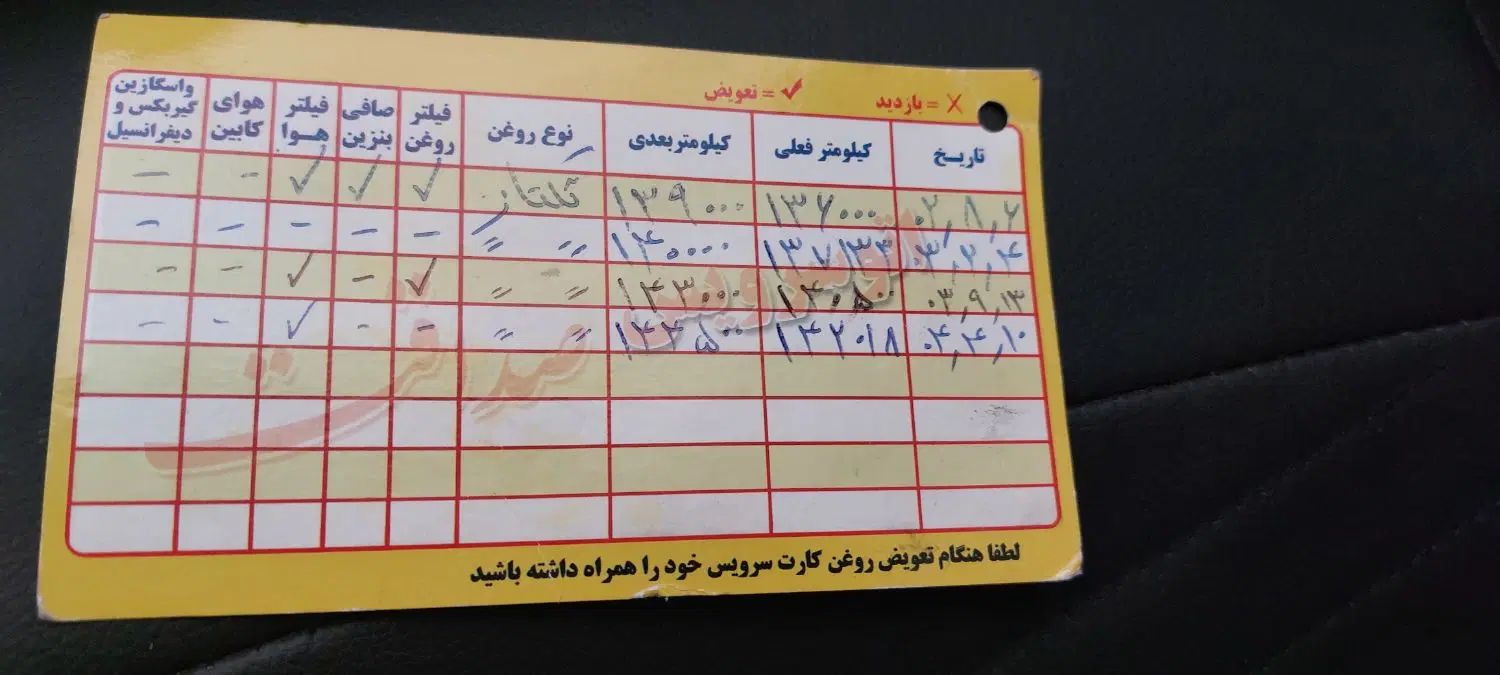 ✓ = تعویض X = بازدید
تاریخ کیلومتر فعلی کیلومتر بعدی نوع روغن فیلتر روغن صافی بنزین فیلتر هوا هوای کابین واسگازین گیربکس و دیفرانسیل
۰۲٫۸٫۶ ۱۳۶۰۰۰ ۱۳۹۰۰۰ ✓ ✓ ✓ - -
۰۳٫۲٫۴ ۱۴۰۰۰۰ " " - - - - -
۰۳٫۹٫۱۳ ۱۴۰۵۰ ۱۴۳۰۰۰ " " ✓ - ✓ - -
۰۴٫۴٫۱۰ ۱۴۲۰۱۸ ۱۴۴۵۰۰ " " - - ✓ - -
صداقت
لطفا هنگام تعویض روغن کارت سرویس خود را همراه داشته باشید